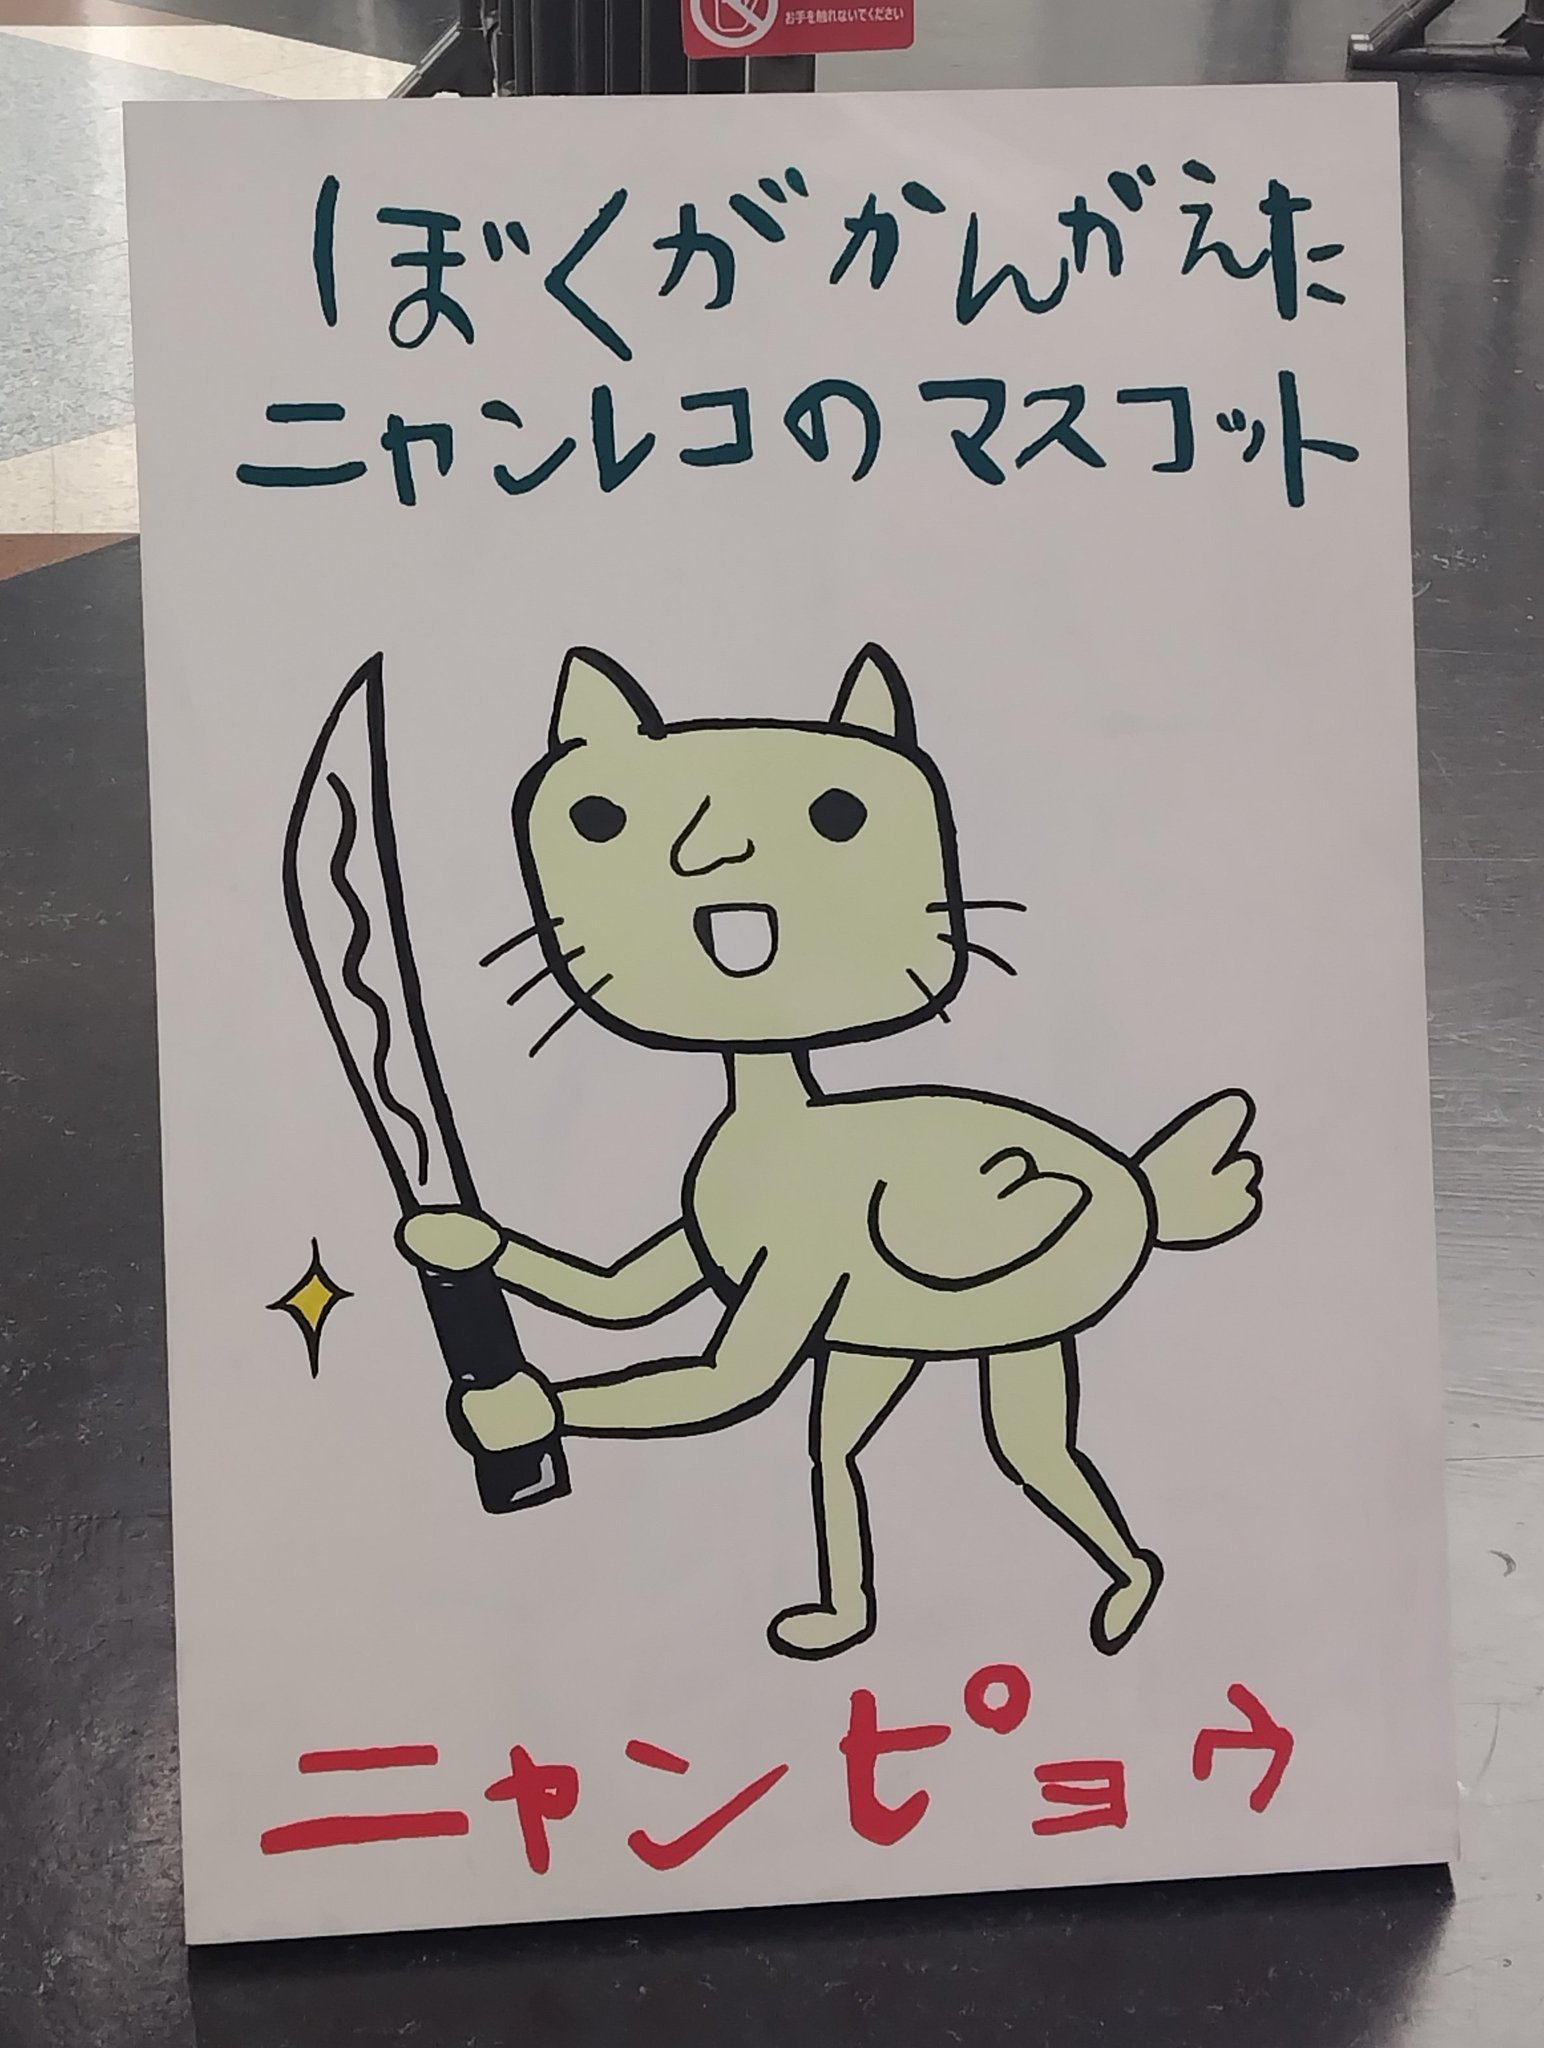 お手を触れないでください
ぼくがかんがえた
ニャンレコのマスコット
ニャンピョウ